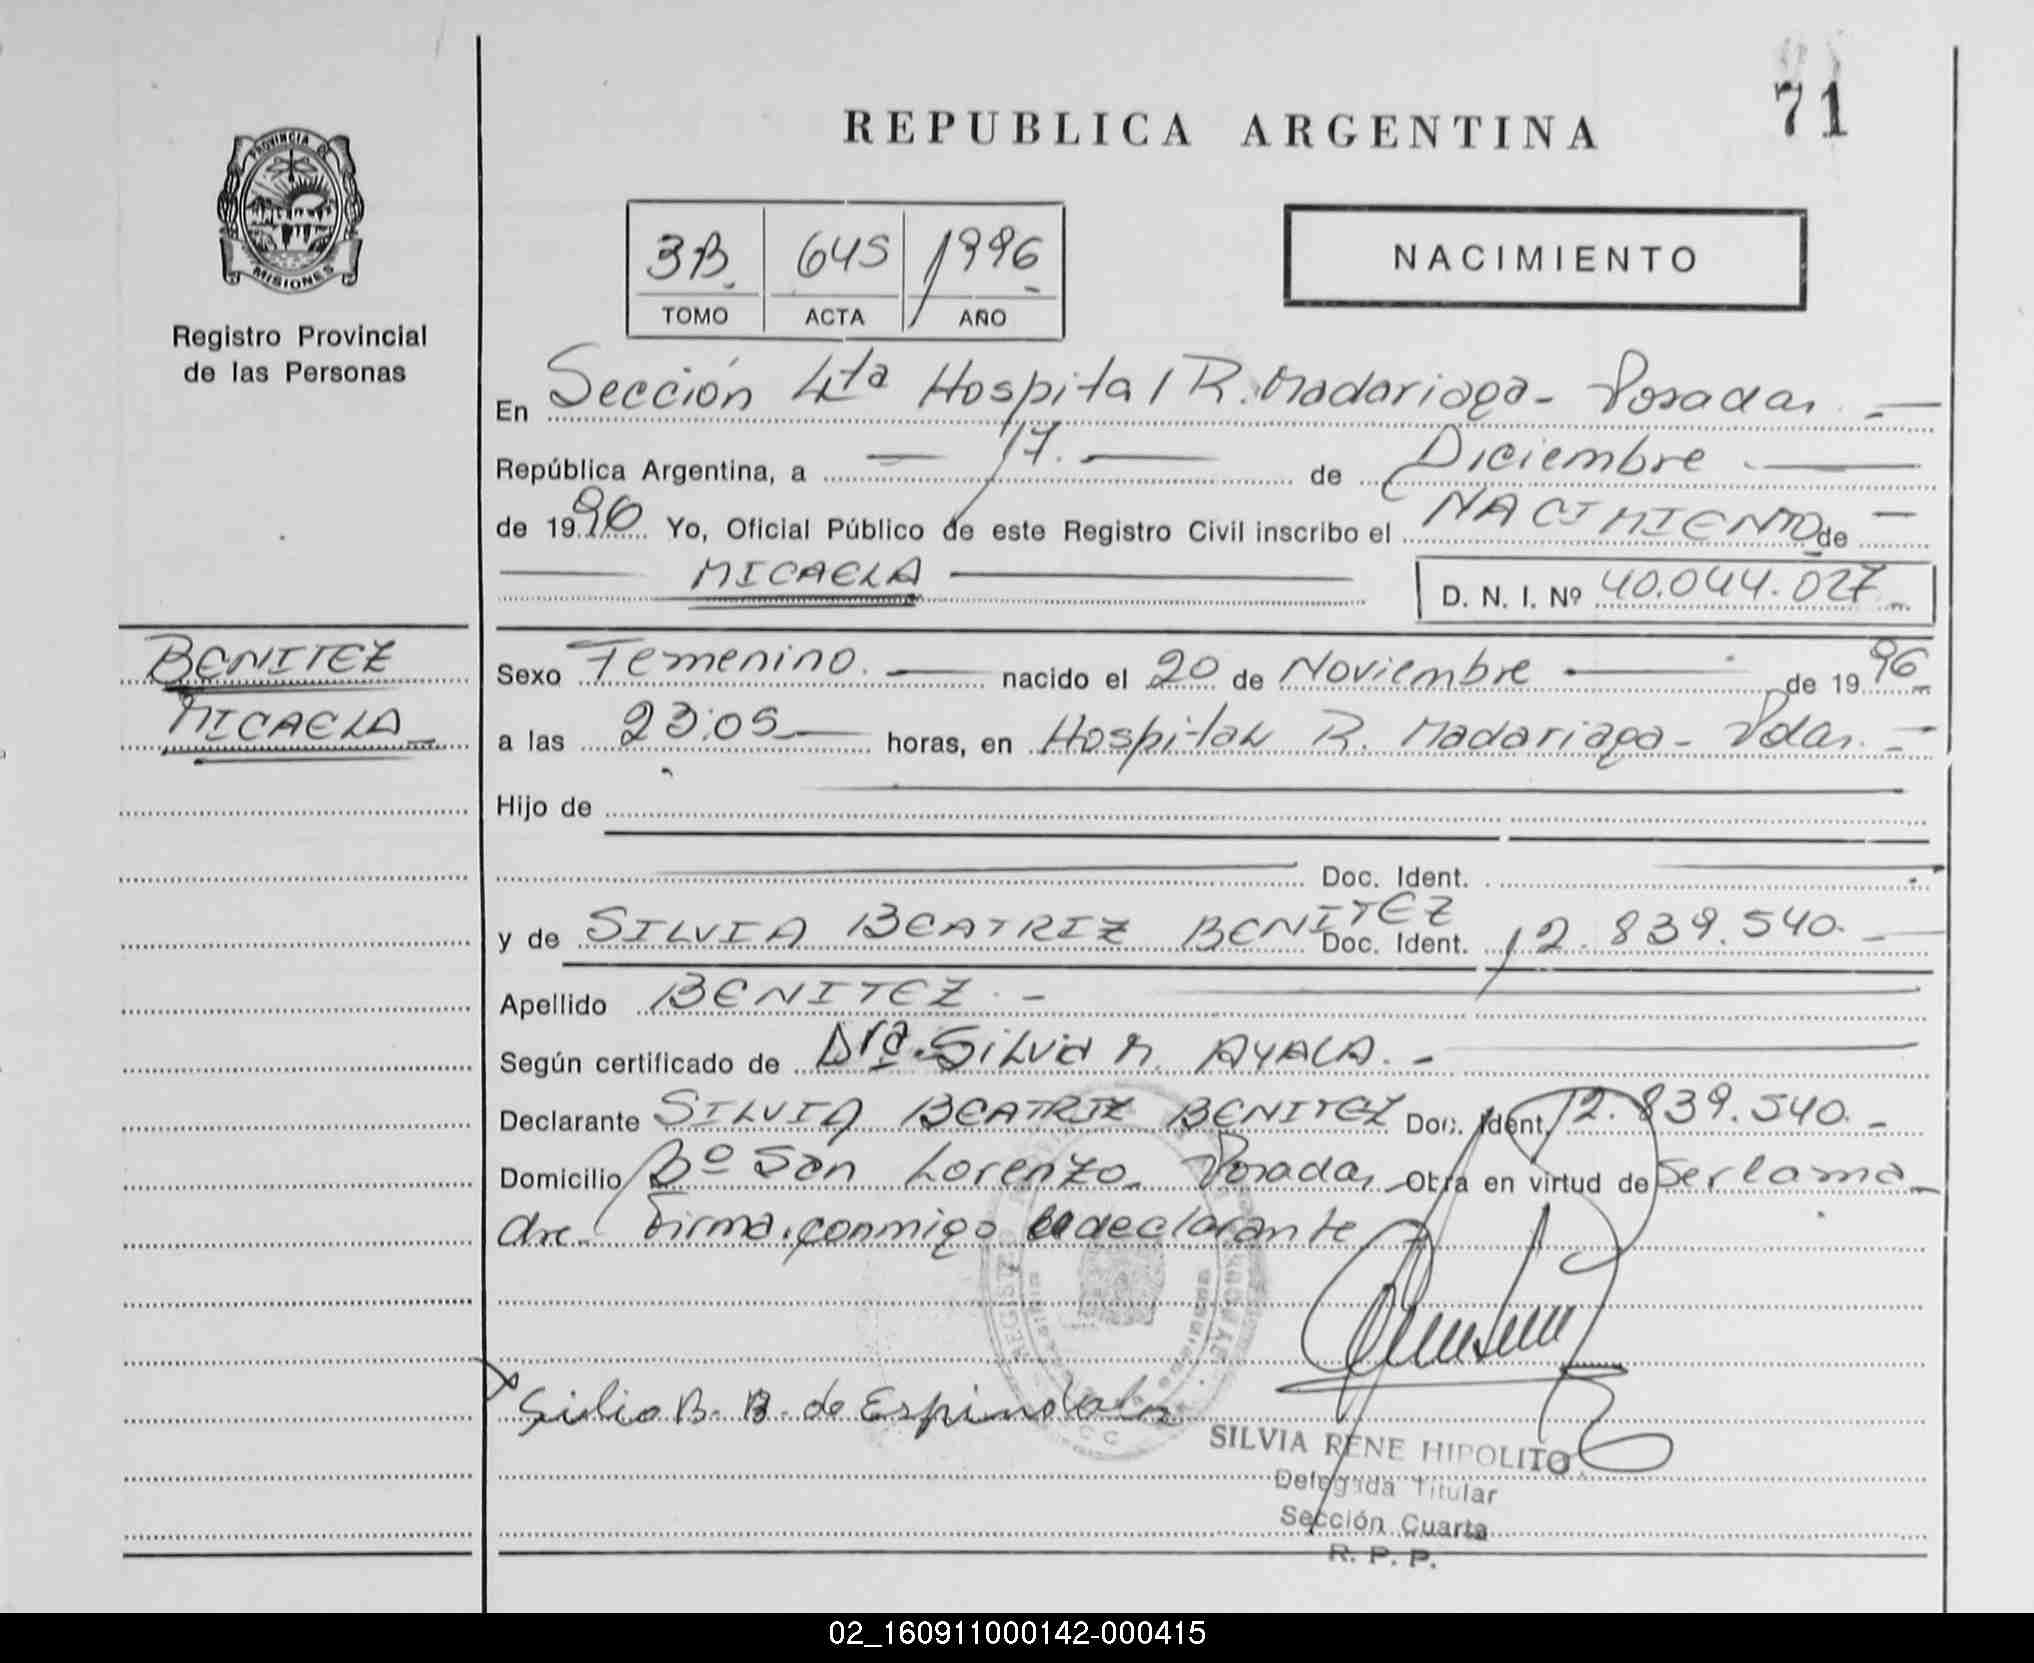 71
REPUBLICA ARGENTINA
PROVINCIA DE
MISIONES
Registro Provincial
de las Personas
3B. 645 1996
TOMO ACTA AÑO
NACIMIENTO
En Sección 4ta Hospital R. Madariaga - Posadas. -
República Argentina, a 17. de Diciembre
de 1996 Yo, Oficial Público de este Registro Civil inscribo el NACIMIENTO de
MICAELA D. N. I. Nº 40.044.027
BENITEZ
MICAELA
Sexo Femenino. nacido el 20 de Noviembre de 1996
a las 23:05 horas, en Hospital R. Madariaga - Pdas. -
Hijo de
Doc. Ident.
y de SILVIA BEATRIZ BENITEZ Doc. Ident. 12.839.540. -
Apellido BENITEZ. -
Según certificado de Dra. Silvia M. AYALA. -
Declarante SILVIA BEATRIZ BENITEZ Doc. Ident. 12.839.540. -
Domicilio Bº San Lorenzo - Posadas - Obra en virtud de Ser la ma-
dre - Firma conmigo la declarante
Silvia B. B. de Espindola
SILVIA RENE HIPOLITO
Delegada Titular
Sección Cuarta
R. P. P.
02_160911000142-000415